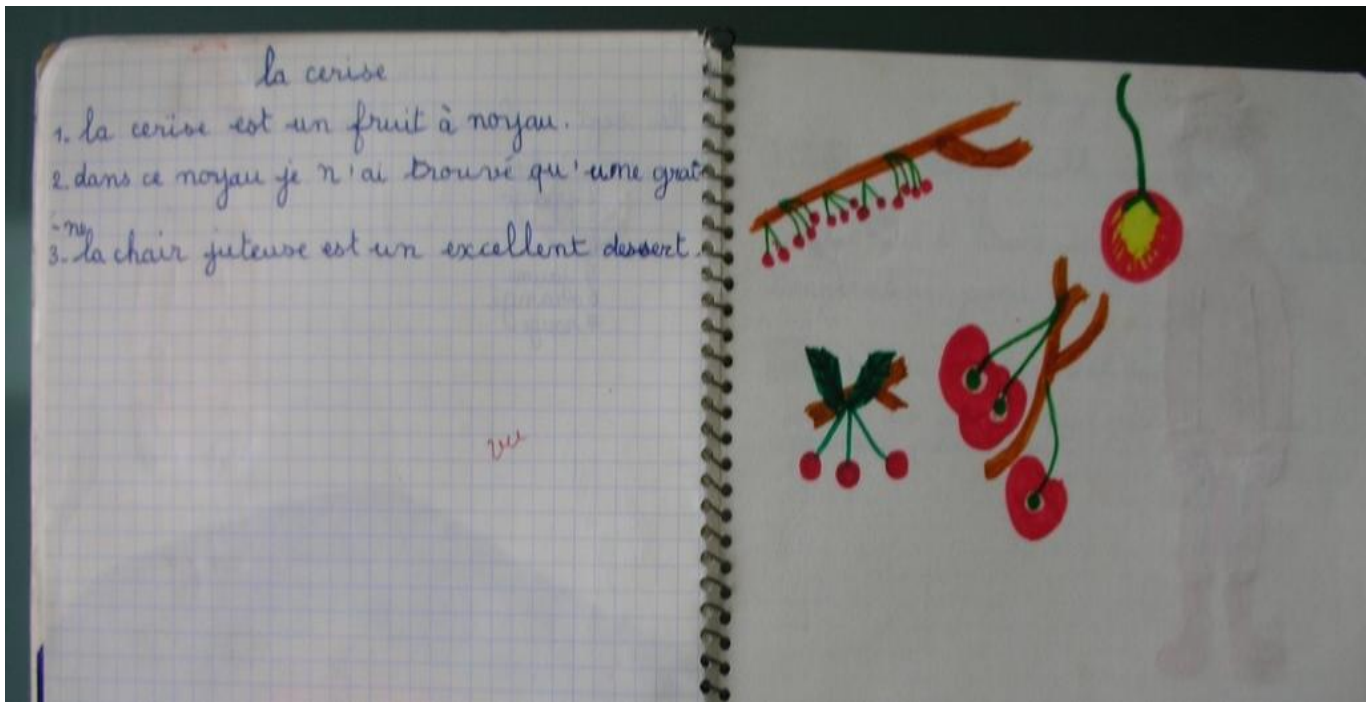 la cerise
1. la cerise est un fruit à noyau.
2. dans ce noyau je n'ai trouvé qu'une grai
-ne
3. la chair juteuse est un excellent dessert.
vu